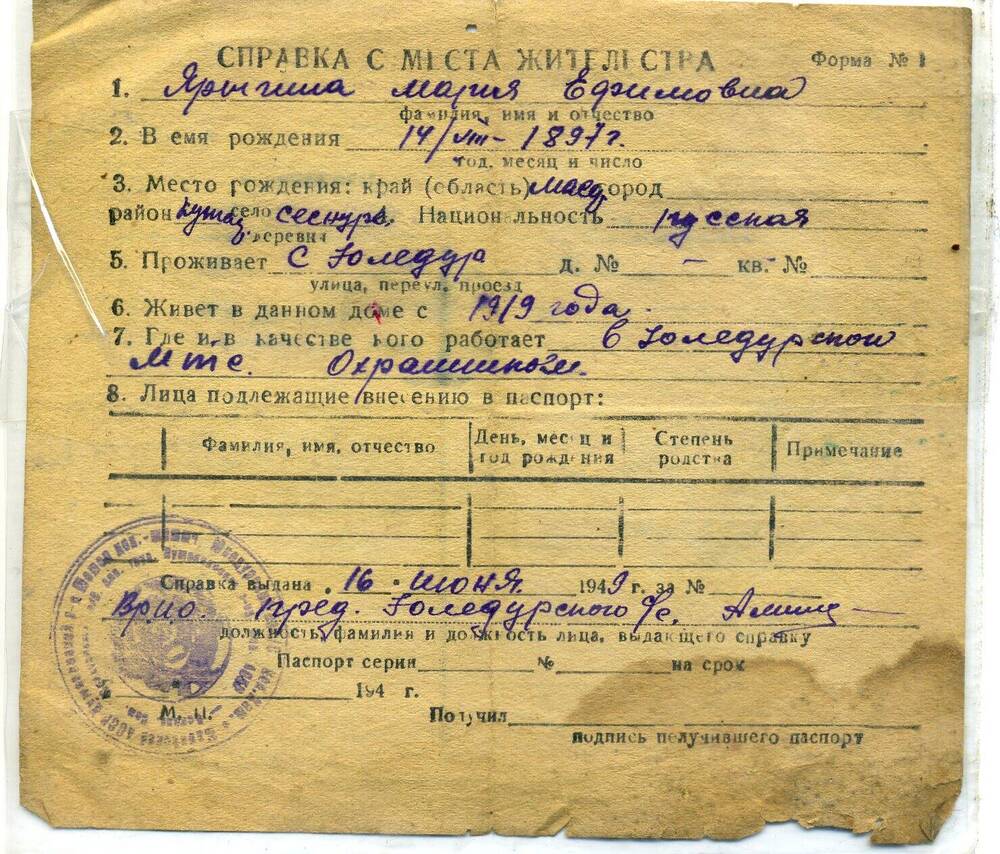 СПРАВКА С МЕСТА ЖИТЕЛЬСТВА Форма № 1
1. Ярыгина Мария Ефимовна
фамилия, имя и отчество
2. В емя рождения 14/VIII-1897г.
год, месяц и число
3. Место рождения: край (область) город
район село Национальность русская
деревня
5. Проживает с Юледур д. № – кв. №
улица, переул. проезд
6. Живет в данном доме с 1919 года.
7. Где и в качестве кого работает в Юледурской
МТС. Охранником.
8. Лица подлежащие внесению в паспорт:
Фамилия, имя, отчество День, месяц и год рождения Степень родства Примечание
Справка выдана 16 июня 1949 г. за №
Врио. пред. Юледурского с/с.
должность, фамилия и должность лица, выдающего справку
Паспорт серии № на срок
194 г.
М. П.
Получил
подпись получившего паспорт